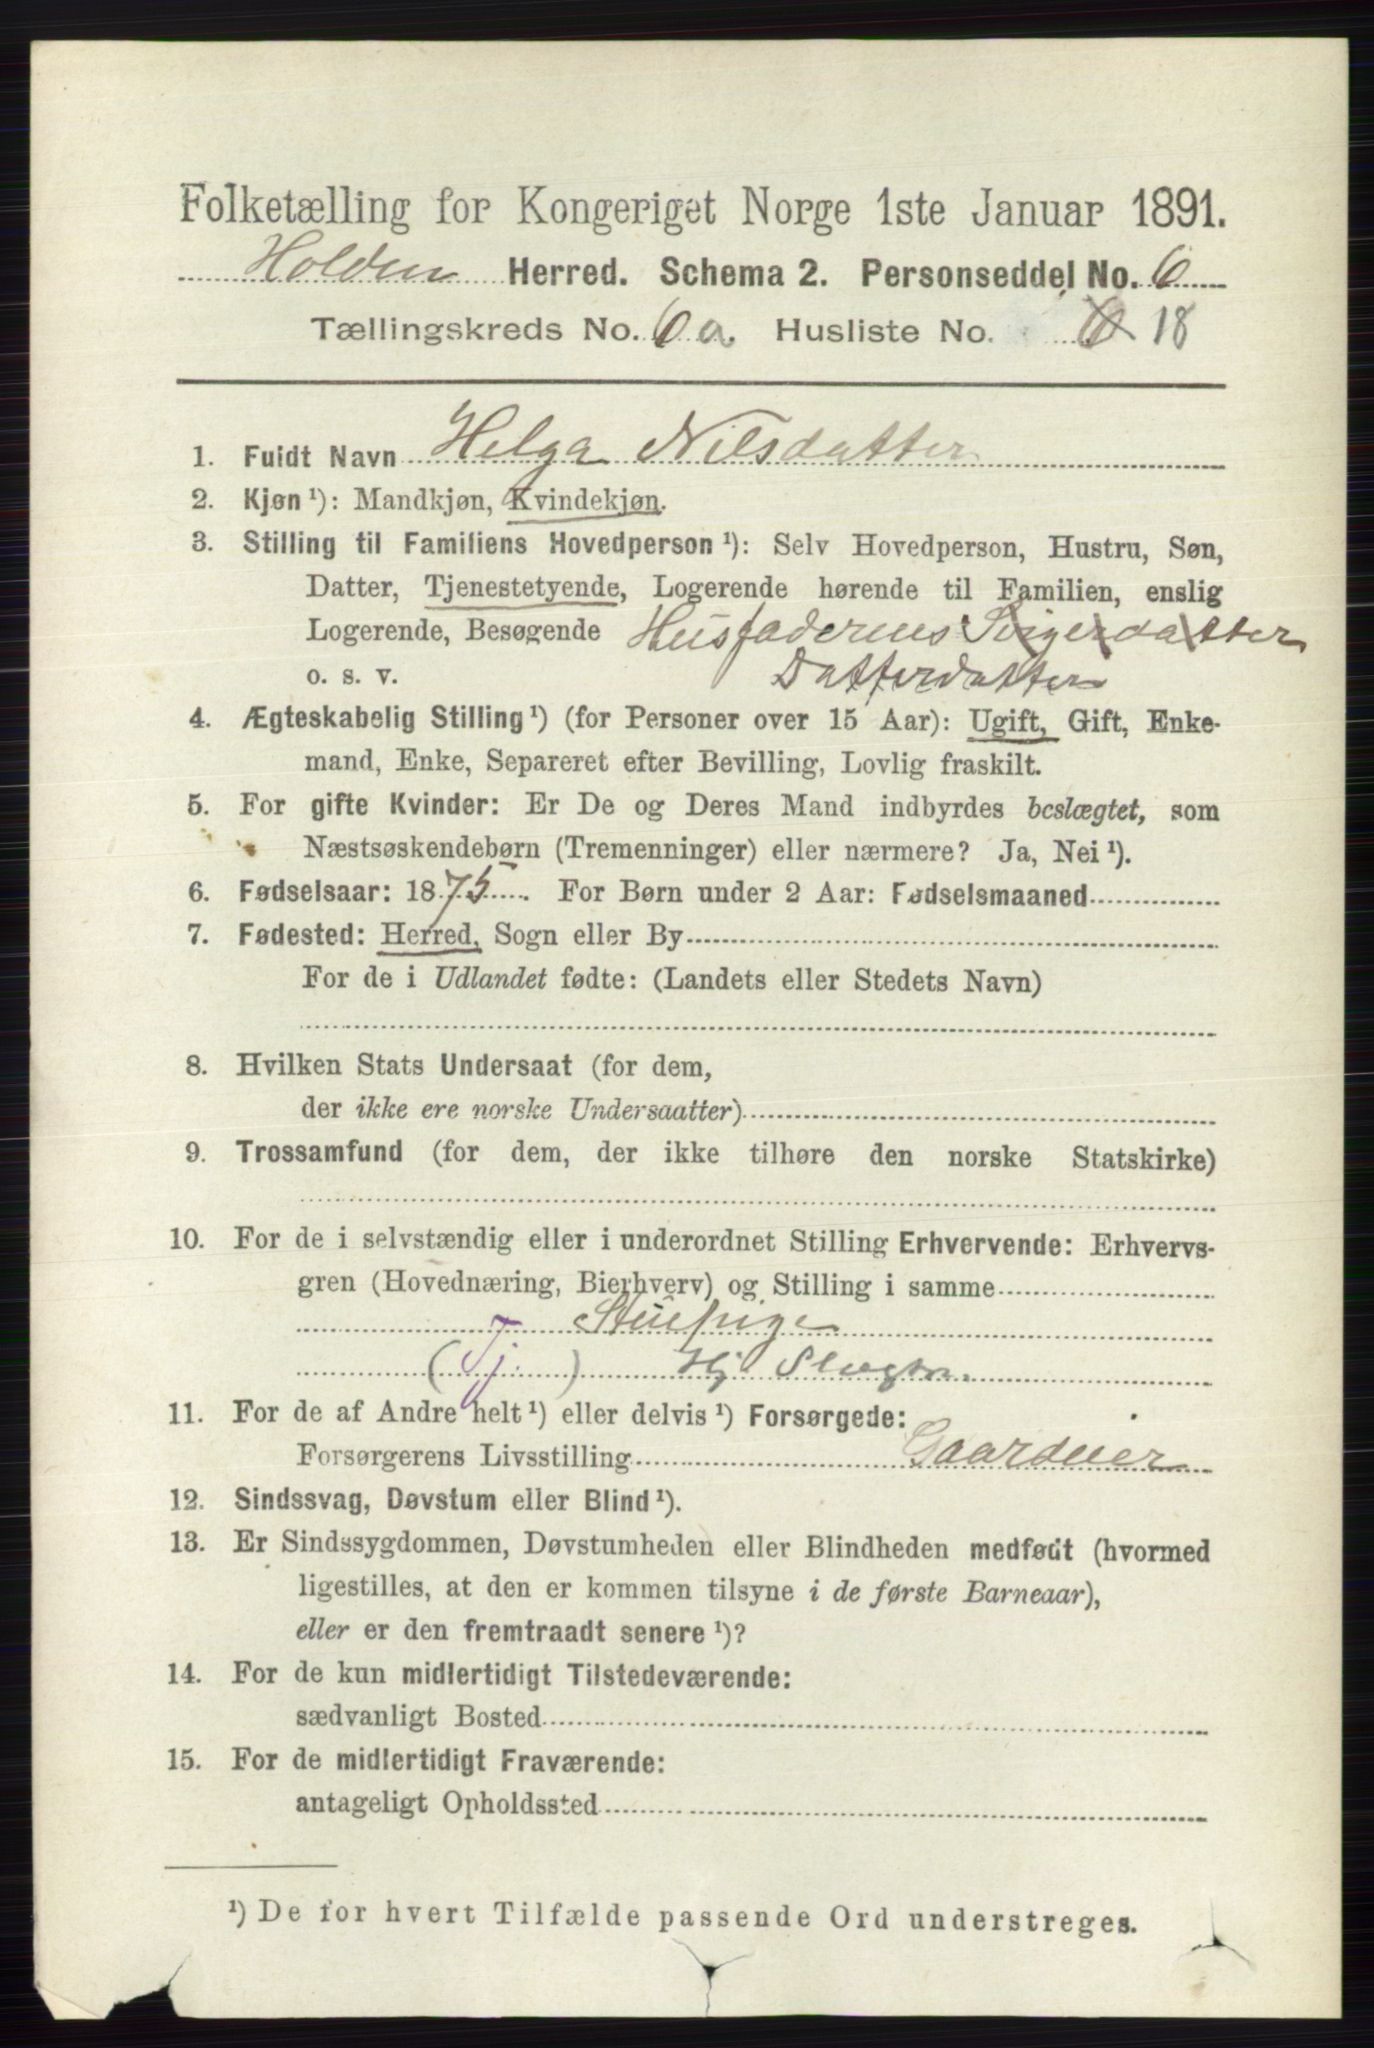 Folketælling for Kongeriget Norge 1ste Januar 1891.
Holden Herred. Schema 2. Personseddel No. 6
Tællingskreds No. 6a. Husliste No. 6 18
1. Fuldt Navn Helga Nilsdatter
2. Kjøn ¹): Mandkjøn, Kvindekjøn.
3. Stilling til Familiens Hovedperson ¹): Selv Hovedperson, Hustru, Søn,
Datter, Tjenestetyende, Logerende hørende til Familien, enslig
Logerende, Besøgende Husfaderens Svigerdatter
o. s. v. Datterdatter
4. Ægteskabelig Stilling ¹) (for Personer over 15 Aar): Ugift, Gift, Enke-
mand, Enke, Separeret efter Bevilling, Lovlig fraskilt.
5. For gifte Kvinder: Er De og Deres Mand indbyrdes beslægtet, som
Næstsøskendebørn (Tremenninger) eller nærmere? Ja, Nei ¹).
6. Fødselsaar: 1875. For Børn under 2 Aar: Fødselsmaaned
7. Fødested: Herred, Sogn eller By
For de i Udlandet fødte: (Landets eller Stedets Navn)
8. Hvilken Stats Undersaat (for dem,
der ikke ere norske Undersaatter)
9. Trossamfund (for dem, der ikke tilhøre den norske Statskirke)
10. For de i selvstændig eller i underordnet Stilling Erhvervende: Erhvervs-
gren (Hovednæring, Bierhverv) og Stilling i samme
Stuepige
(Tj. ) Hj
11. For de af Andre helt ¹) eller delvis ¹) Forsørgede:
Forsørgerens Livsstilling Gaardeier
12. Sindssvag, Døvstum eller Blind ¹).
13. Er Sindssygdommen, Døvstumheden eller Blindheden medfødt (hvormed
ligestilles, at den er kommen tilsyne i de første Barneaar),
eller er den fremtraadt senere ¹)?
14. For de kun midlertidigt Tilstedeværende:
sædvanligt Bosted
15. For de midlertidigt Fraværende:
antageligt Opholdssted
¹) De for hvert Tilfælde passende Ord understreges.